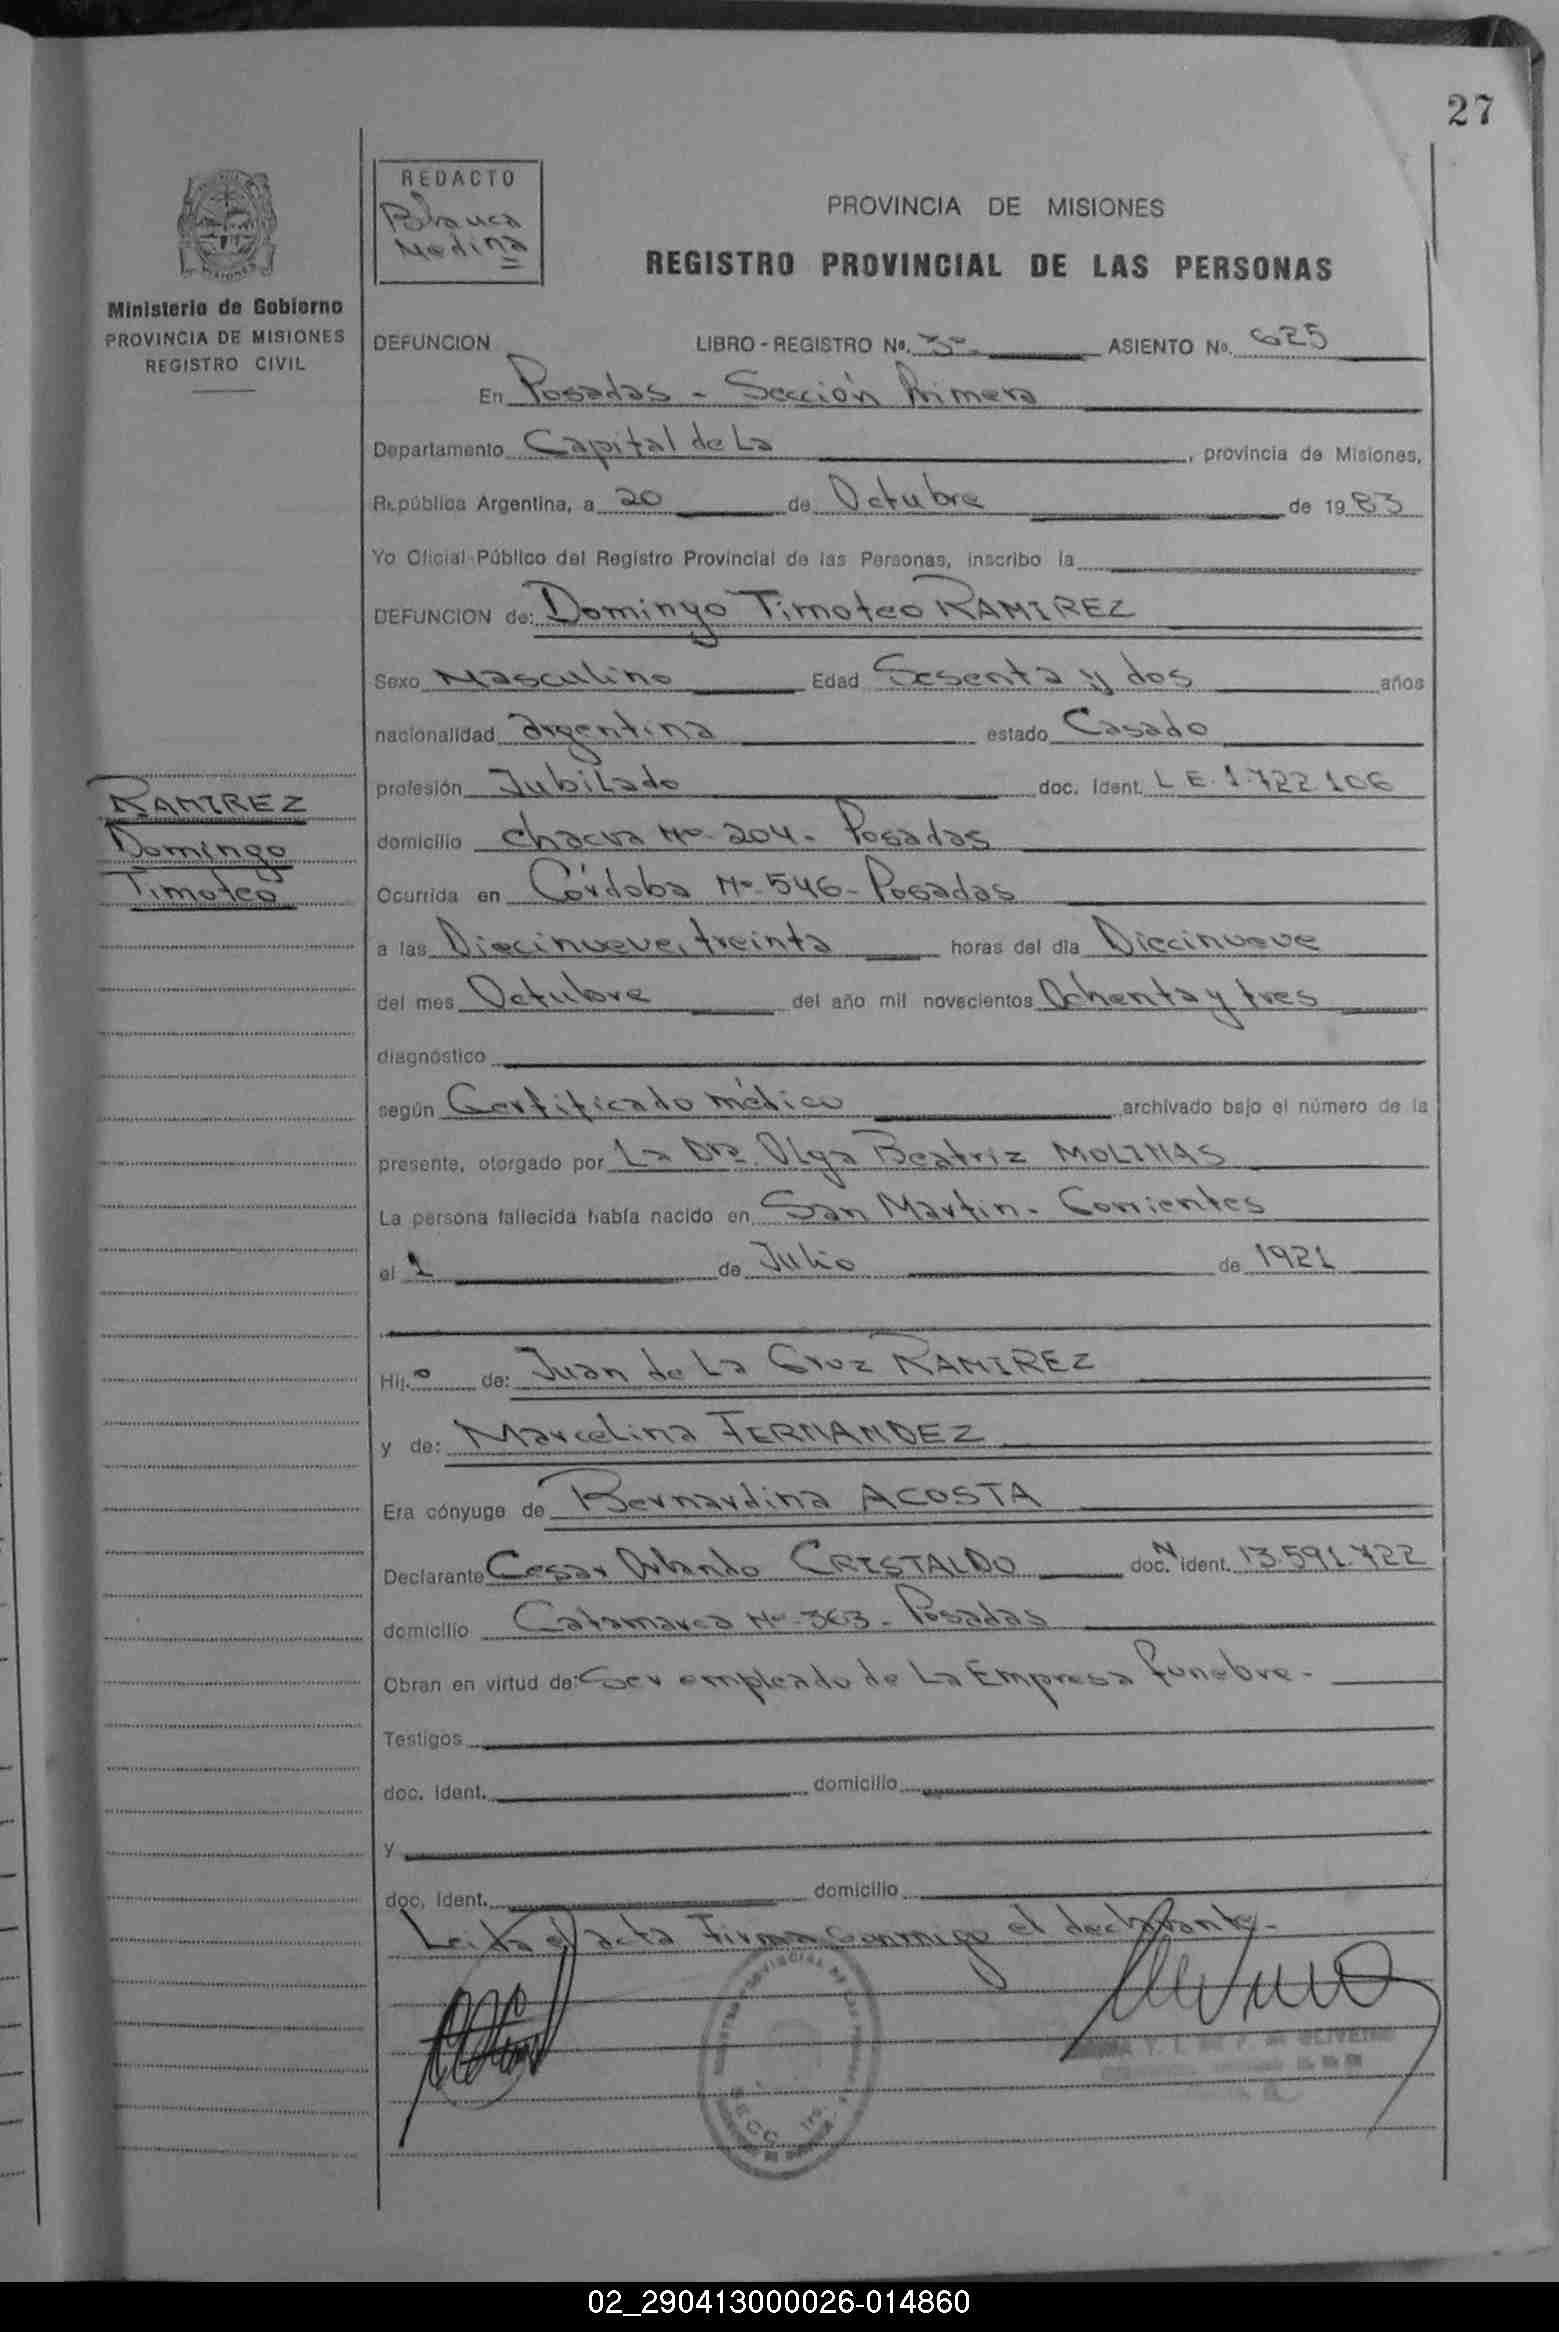 27
REDACTO
Blanca
Medina
PROVINCIA DE MISIONES
REGISTRO PROVINCIAL DE LAS PERSONAS
Ministerio de Gobierno
PROVINCIA DE MISIONES
REGISTRO CIVIL
DEFUNCION LIBRO - REGISTRO Nº. 3º ASIENTO Nº. 625
En Posadas - Sección Primera
Departamento Capital de La , provincia de Misiones,
República Argentina, a 20 de Octubre de 1983
Yo Oficial Público del Registro Provincial de las Personas, inscribo la
DEFUNCION de: Domingo Timoteo RAMIREZ
Sexo Masculino Edad Sesenta y dos años
nacionalidad argentina estado Casado
profesión Jubilado doc. Ident. L E. 1.722.106
RAMIREZ
Domingo
Timoteo
domicilio chacra Nº 204 - Posadas
Ocurrida en Córdoba Nº 546 - Posadas
a las Diecinueve, treinta horas del día Diecinueve
del mes Octubre del año mil novecientos Ochenta y tres
diagnóstico
según Certificado médico archivado bajo el número de la
presente, otorgado por La Dra. Olga Beatriz MOLINAS
La persona fallecida había nacido en San Martin - Corrientes
el 1 de Julio de 1921
Hij.o de: Juan de La Cruz RAMIREZ
y de: Marcelina FERNANDEZ
Era cónyuge de Bernardina ACOSTA
Declarante Cesar Orlando CRISTALDO doc. N ident. 13.591.722
domicilio Catamarca Nº 363 - Posadas
Obran en virtud de: Ser empleado de La Empresa funebre.
Testigos
doc. Ident. domicilio
y
doc. Ident. domicilio
Leida el acta Firma conmigo el declarante.
02_290413000026-014860